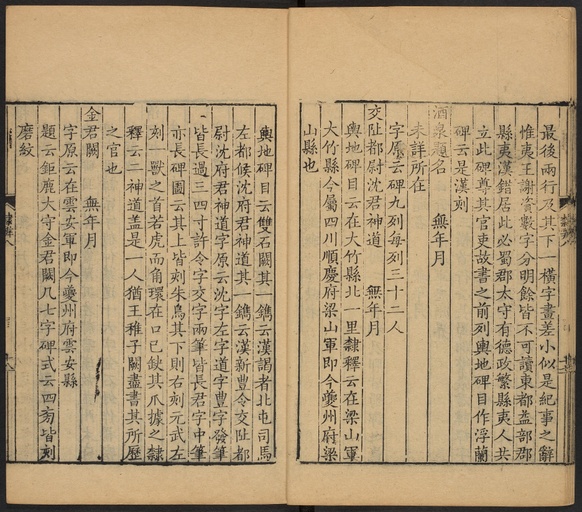 最後兩行及其下一橫字畫差小似是紀事之辭
惟夷王謝資數字分明餘皆不可讀東都益部郡
縣夷漢錯居此必蜀郡太守有德政繁縣夷人共
立此碑尊其官吏故書之前列輿地碑目作浮蘭
碑云是漢刻
酒泉題名 無年月
未詳所在
字原云碑九列每列三十二人
交阯都尉沈君神道 無年月
輿地碑目云在大竹縣北一里隸釋云在梁山軍
大竹縣今屬四川順慶府梁山軍即今夔州府梁
山縣也
輿地碑目云雙石闕其一鐫云漢謁者北屯司馬
左都候沈府君神道其一鐫云漢新豐令交阯都
尉沈府君神道字原云沈字左字道字豐字發筆
皆長過三四寸許令字交字兩筆皆長君字中筆
亦長碑圖云其上皆刻朱鳥其下則右刻元武左
刻一獸之首若虎而角環在口已缺其爪據之隸
釋云二神道蓋是一人猶王稚子闕盡書其所歷
之官也
金君闕 無年月
字原云在雲安軍即今夔州府雲安縣
題云鉅鹿大守金君闕凡七字碑式云四旁皆刻
磨紋